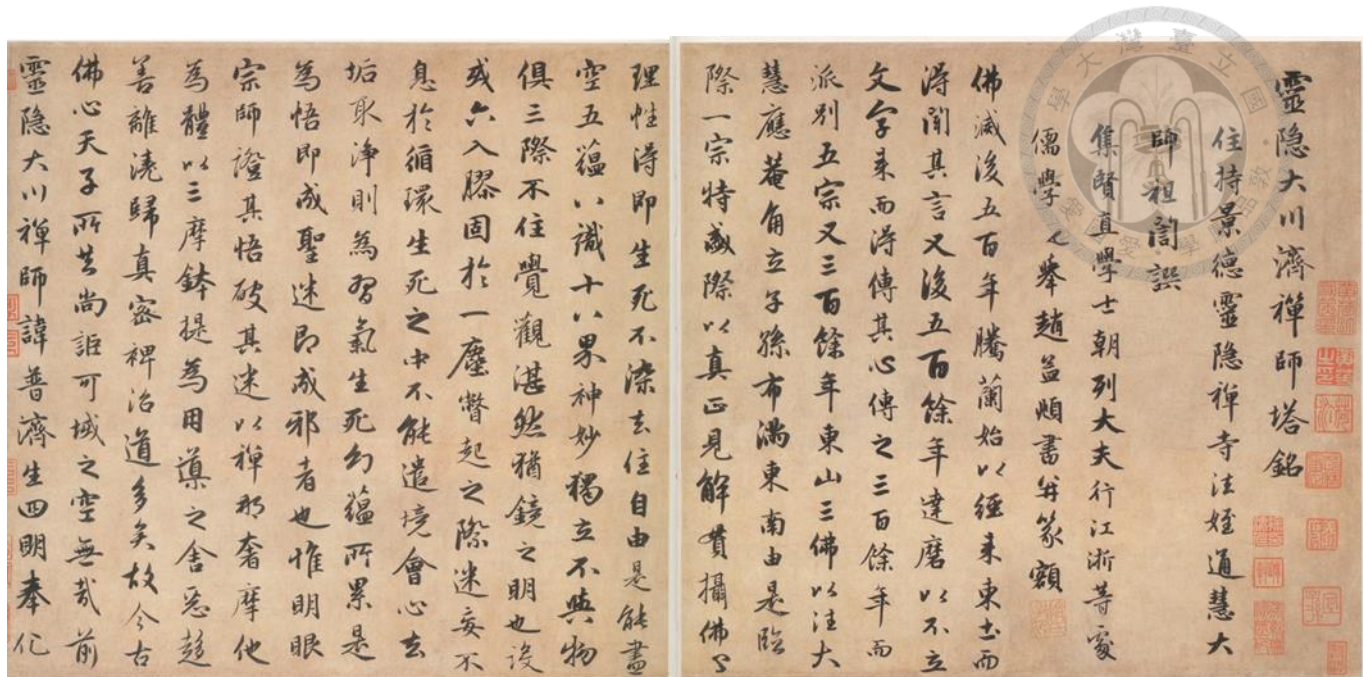 靈隐大川濟禪師塔銘
住持景德靈隐禪寺法姪通慧大
師祖訚譔
集賢直學士朝列大夫行江浙等處
儒學提舉趙孟頫書并篆額
佛滅後五百年騰蘭始以經来東土而
得聞其言又後五百餘年達磨以不立
文字来而得傳其心傳之三百餘年而
派别五宗又三百餘年東山三佛以法大
慧應菴角立子孫布滿東南由是臨
際一宗特盛際以真正見解貫攝佛
理性得即生死不染去住自由是能盡
空五蘊八識十八界神妙獨立不與物
俱三際不住覺觀湛然猶鏡之明也設
或六入膠固於一塵瞥起之際迷妄不
息於循環生死之中不能遣境會心去
垢取淨則為習氣生死幻蘊所累是
為悟即成聖迷即成邪者也惟明眼
宗師證其悟破其迷以禪那奢摩他
為體以三摩鉢提為用導之舍惡趍
善離澆歸真密裨治道多矣故今古
佛心天子所共尚詎可域之空無哉前
靈隐大川禪師諱普濟生四明奉化